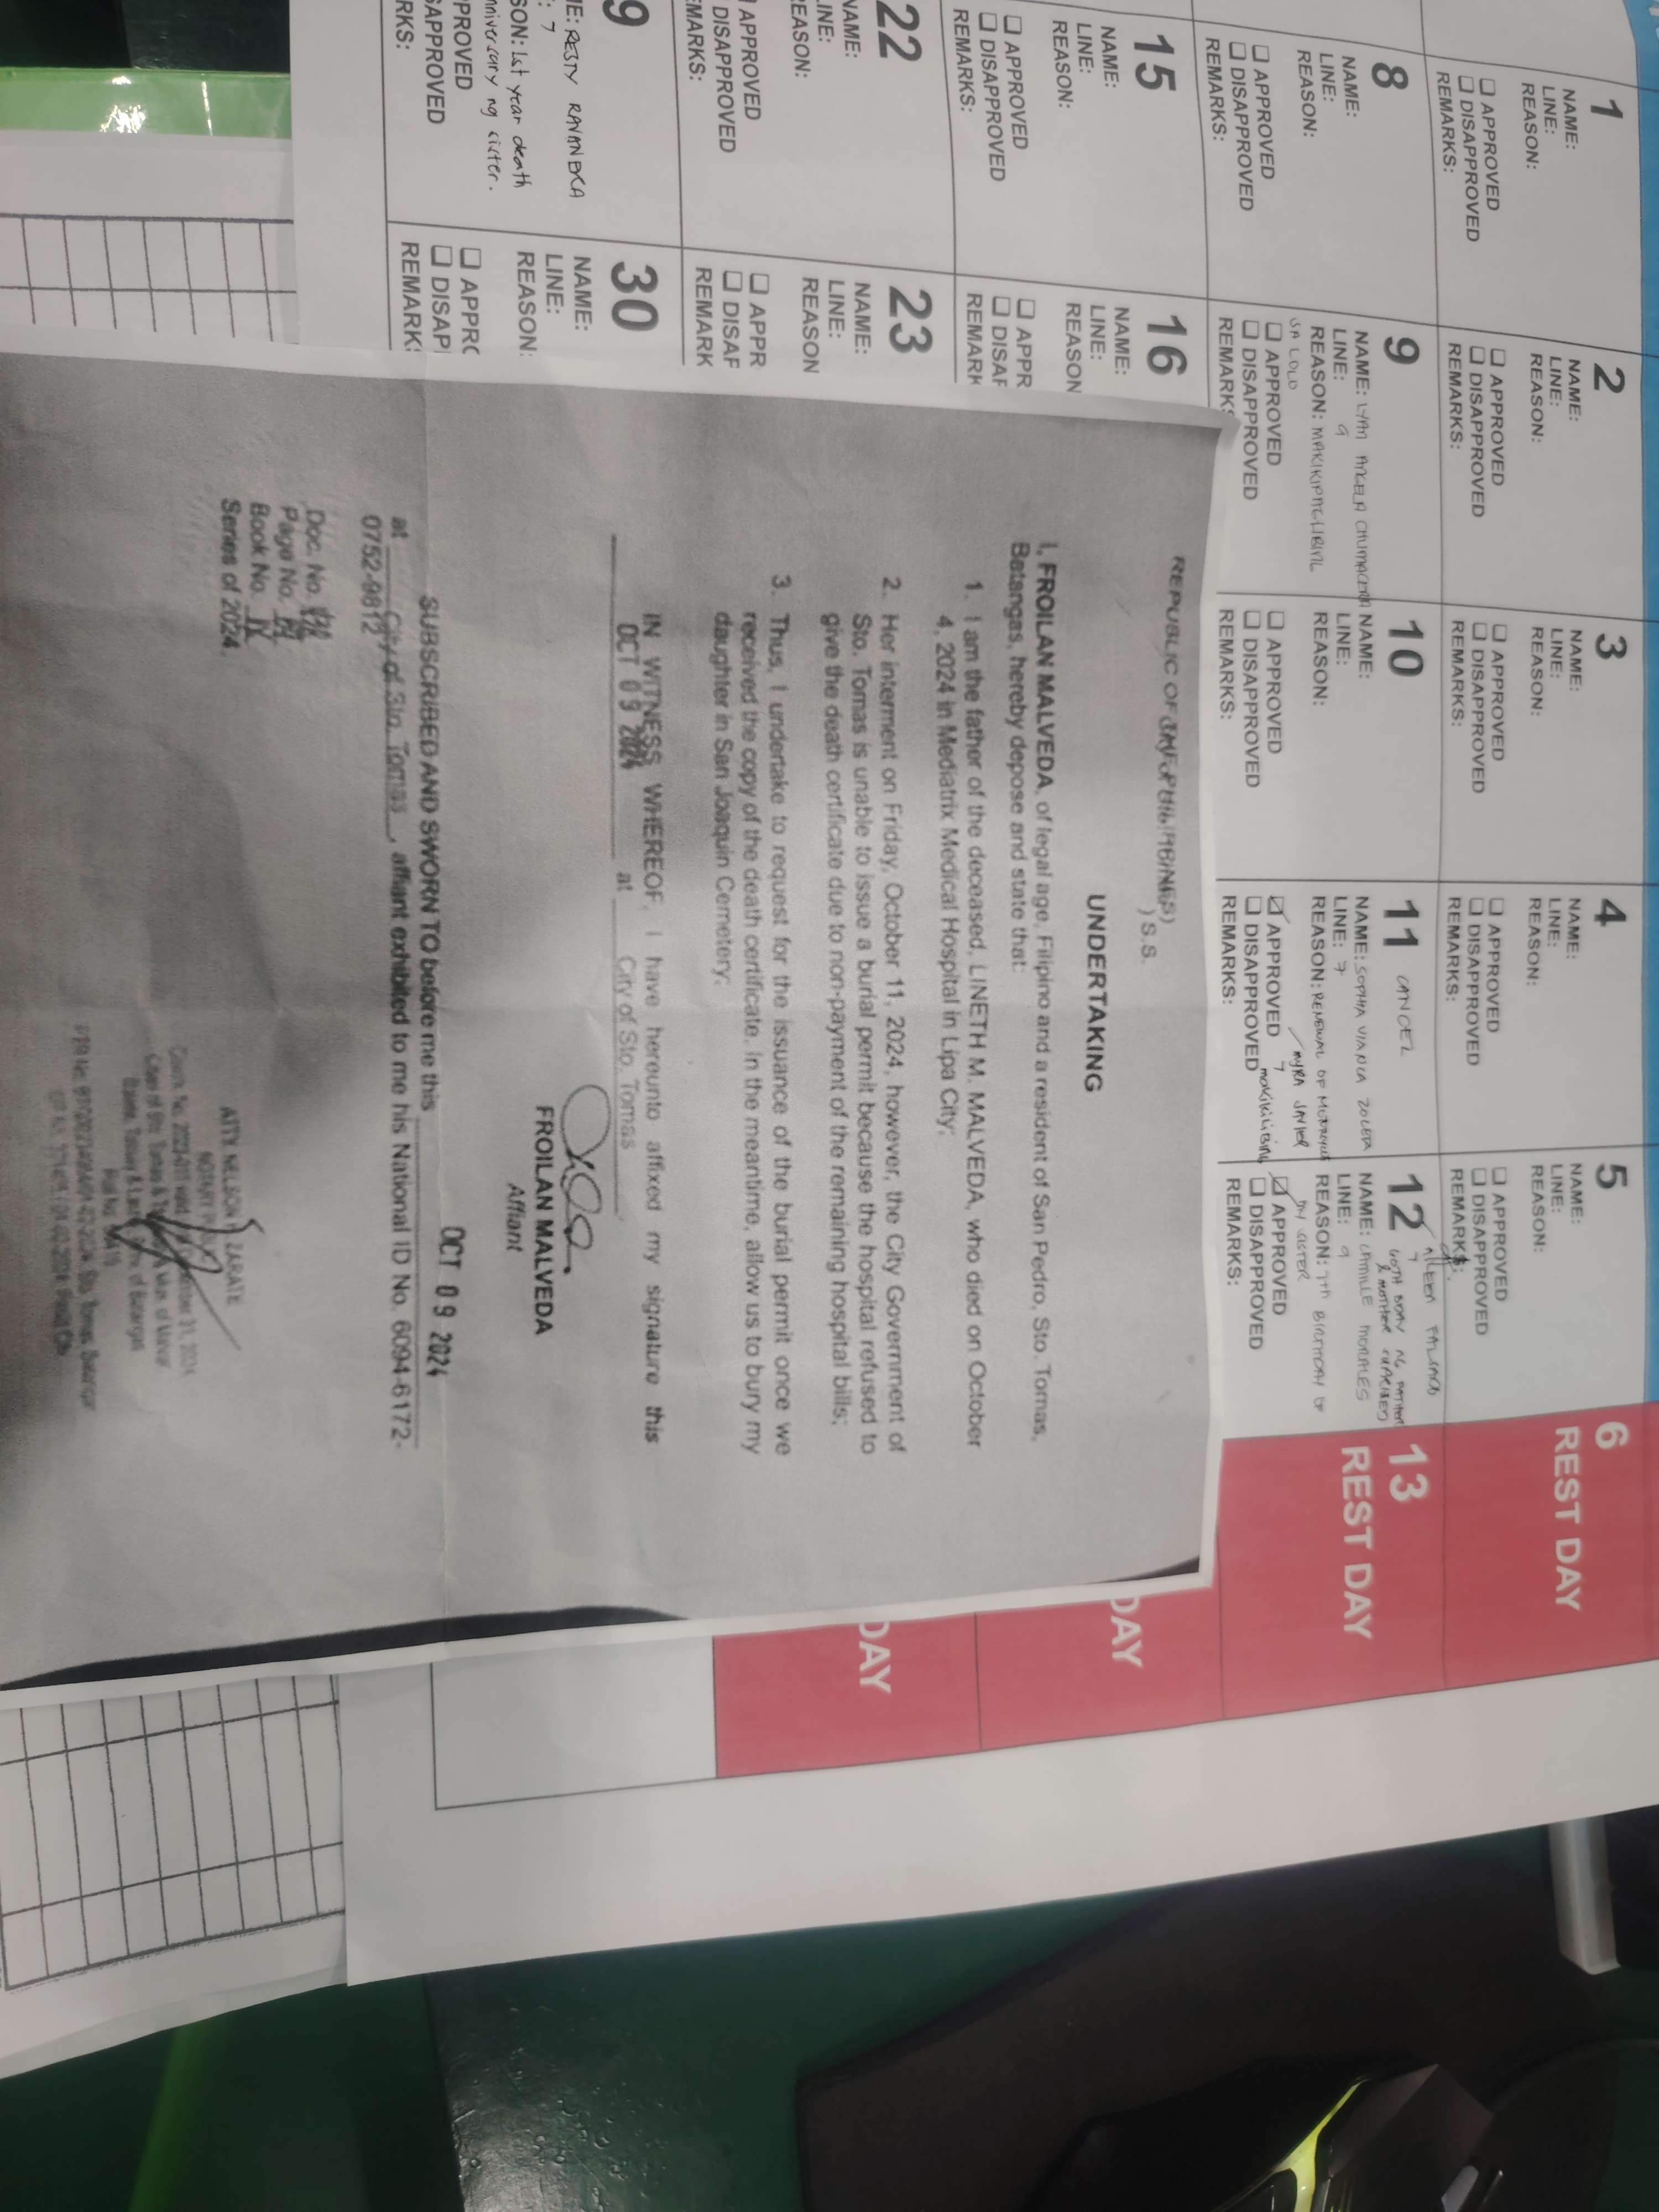 1
NAME:
LINE:
REASON:
❑ APPROVED
❑ DISAPPROVED
REMARKS:
2
NAME:
LINE:
REASON:
❑ APPROVED
❑ DISAPPROVED
REMARKS:
3
NAME:
LINE:
REASON:
❑ APPROVED
❑ DISAPPROVED
REMARKS:
4
NAME:
LINE:
REASON:
❑ APPROVED
❑ DISAPPROVED
REMARKS:
5
NAME:
LINE:
REASON:
❑ APPROVED
❑ DISAPPROVED
REMARKS:
6
REST DAY
8
NAME:
LINE:
REASON:
❑ APPROVED
❑ DISAPPROVED
REMARKS:
9
NAME: LYAN ANGELA
LINE: 9
REASON: MAKIKIPAGLIBING
SA LOLO
❑ APPROVED
❑ DISAPPROVED
REMARKS:
10
NAME:
LINE:
REASON:
❑ APPROVED
❑ DISAPPROVED
REMARKS:
11 CANCEL
NAME: SOPHIA VIANCA ZOLETA
LINE: 7
REASON: RENEWAL OF
MYRA JAVIER
☑ APPROVED 7
❑ DISAPPROVED makikilibing
REMARKS:
12
7
NAME: CAMILLE MORALES
LINE: 9
REASON: 7th BIRTHDAY OF
MY SISTER
☑ APPROVED
❑ DISAPPROVED
REMARKS:
13
REST DAY
15
NAME:
LINE:
REASON:
❑ APPROVED
❑ DISAPPROVED
REMARKS:
16
NAME:
LINE:
REASON
❑ APPR
❑ DISAF
REMARK
DAY
22
NAME:
LINE:
REASON:
APPROVED
DISAPPROVED
EMARKS:
23
NAME:
LINE:
REASON
❑ APPR
❑ DISAF
REMARK
DAY
9
ME: RESTY
: 7
SON: 1st year death
nniversary ng sister.
PROVED
SAPPROVED
RKS:
30
NAME:
LINE:
REASON:
❑ APPRO
❑ DISAP
REMARKS
REPUBLIC OF
) S.S.
UNDERTAKING
I, FROILAN MALVEDA, of legal age, Filipino and a resident of San Pedro, Sto. Tomas,
Batangas, hereby depose and state that:
1. I am the father of the deceased, LINETH M. MALVEDA, who died on October
4, 2024 in Mediatrix Medical Hospital in Lipa City;
2. Her interment on Friday, October 11, 2024, however, the City Government of
Sto. Tomas is unable to issue a burial permit because the hospital refused to
give the death certificate due to non-payment of the remaining hospital bills;
3. Thus, I undertake to request for the issuance of the burial permit once we
received the copy of the death certificate. In the meantime, allow us to bury my
daughter in San Joaquin Cemetery;
IN WITNESS WHEREOF, I have hereunto affixed my signature this
OCT 09 2024 at City of Sto. Tomas.
FROILAN MALVEDA
Affiant
SUBSCRIBED AND SWORN TO before me this OCT 09 2024
at City of Sto. Tomas, affiant exhibited to me his National ID No. 6094-6172-
0752-9812
Doc. No.
Page No.
Book No. IX
Series of 2024.
ATTY. NELSON ZARATE
NOTARY